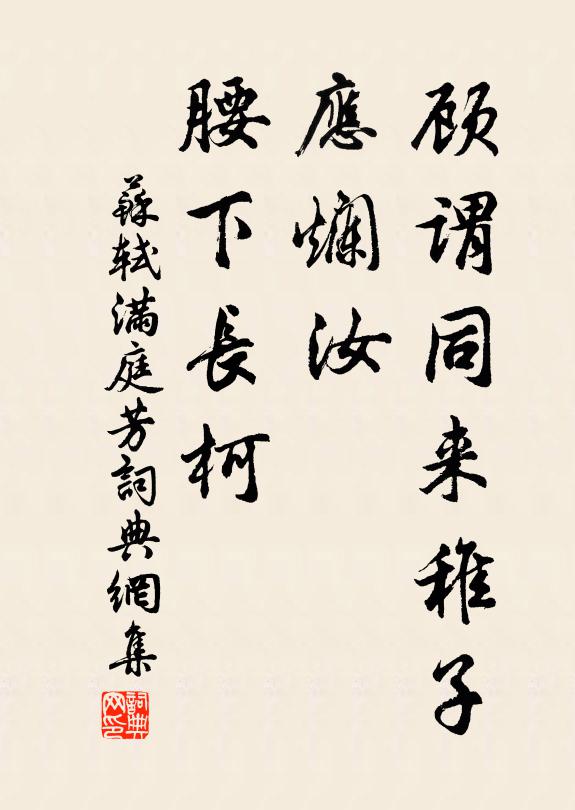 顾謂同来稚子
應爛汝
腰下長柯
蘇軾滿庭芳詞典網集
詞典网印